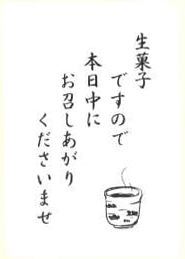 生菓子
ですので
本日中に
お召しあがり
くださいませ